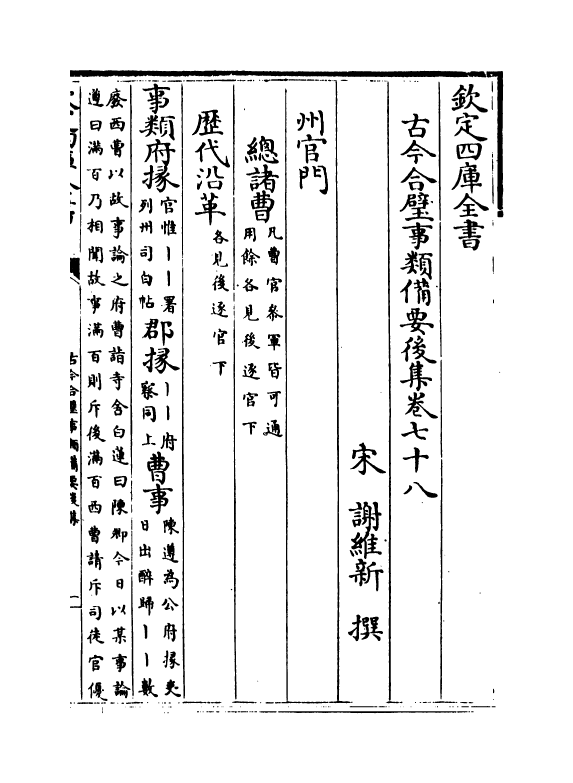 欽定四庫全書
古今合璧事類備要後集卷七十八
宋 謝維新 撰
州官門
總諸曹凡曹官叅軍皆可通
用餘各見後逐官下
歴代沿革各見後逐官下
事類府掾官惟丨丨署
列州司白帖郡掾丨丨府
寮同上曹事陳遵為公府掾夾
日出醉歸丨丨數
廢西曹以故事論之府曹詣寺舍白蓮曰陳卿今日以某事論
遵曰滿百乃相聞故事滿百則斥後滿百西曹請斥司徒官優